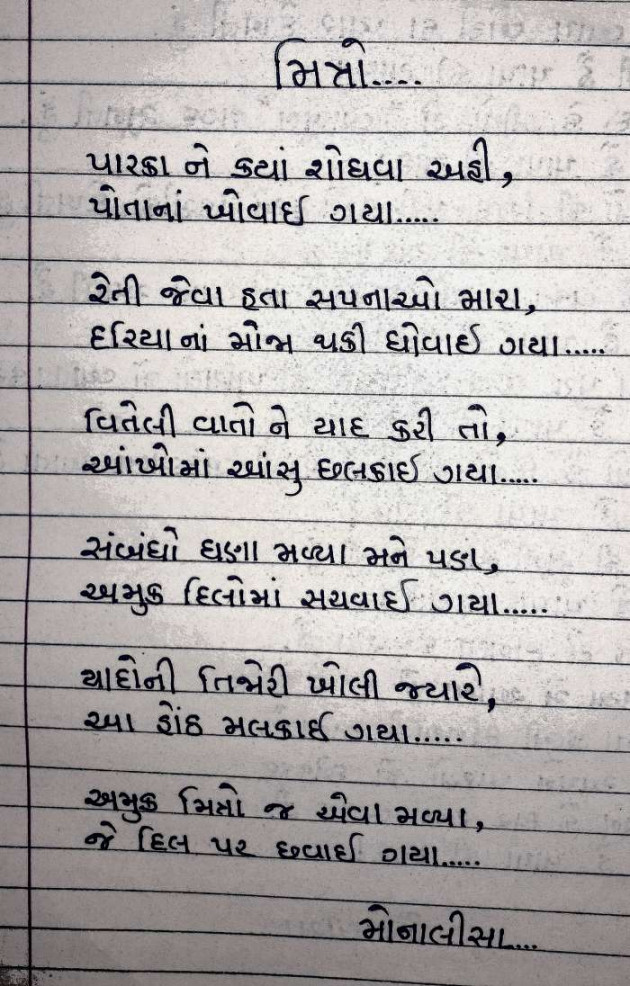 મિત્રો....
પારકા ને ક્યાં શોધવા અહી,
પોતાનાં ખોવાઈ ગયા.....
રેતી જેવા હતા સપનાઓ મારા,
દરિયાનાં મોજા થકી ધોવાઈ ગયા.....
વિતેલી વાતો ને યાદ કરી તો,
આંખોમાં આંસુ છલકાઈ ગયા.....
સંબંધો ઘણા મળ્યા મને પણ,
અમુક દિલોમાં સચવાઈ ગયા.....
યાદોની તિજોરી ખોલી જ્યારે,
આ હોંઠ મલકાઈ ગયા.....
અમુક મિત્રો જ એવા મળ્યા,
જે દિલ પર છવાઈ ગયા.....
મોનાલીસા...